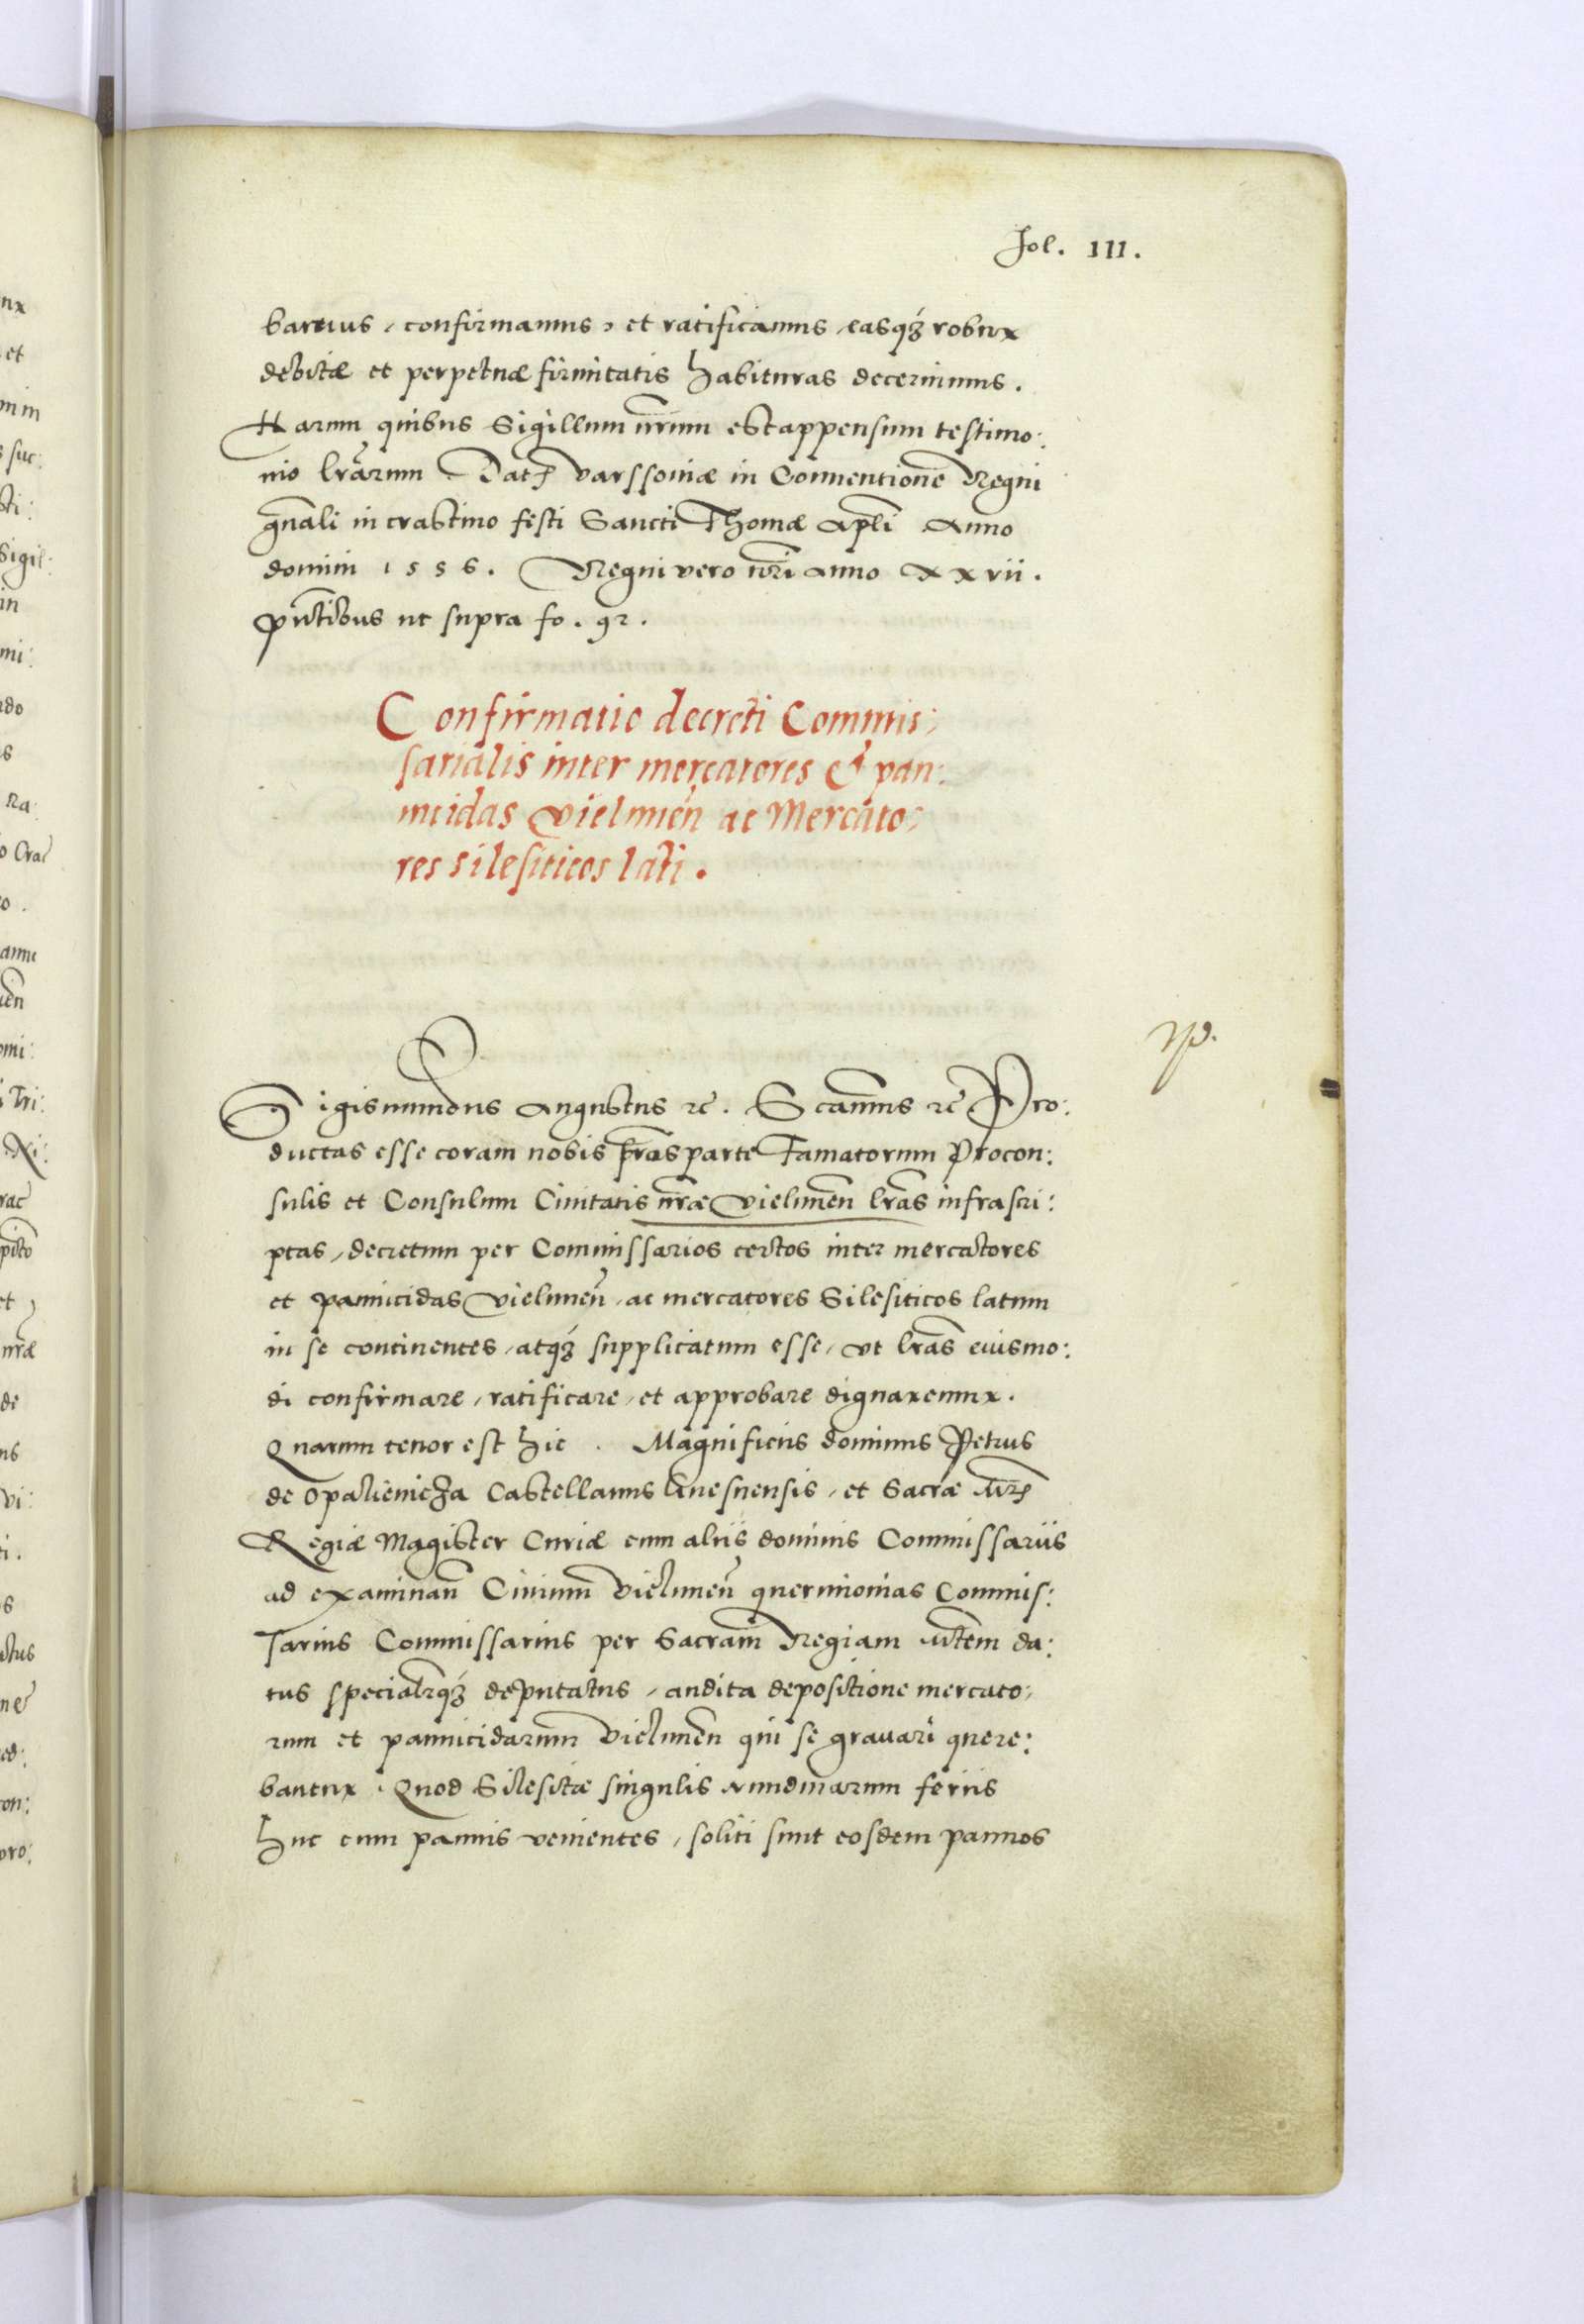 Fol. 111.
bamus, confirmamus, et ratificamus, easq3 robur
debitæ et perpetuæ firmitatis habituras decernimus.
Harum quibus Sigillum nr̃um est appensum testimo:
nio lr̃arum Dat Varssoviæ in Conventione Regni
gñali in crastino festi Sancti Thomæ apli Anno
domini 1556. Regni vero nr̃i anno xxvii.
Pñtibus ut supra fo. 92.
Confirmatio decreti Commis:
sarialis inter mercatores et pan:
nicidas Vielunen̄ ac Mercato:
res silesiticos lati.
Sigismundus Augustus rc̃. Significamus rc̃ Pro:
ductas esse coram nobis lr̃as parte Famatorum Procon:
sulis et Consulum Civitatis nr̃æ Vielunen̄ lr̃as infrascri:
ptas, decretum per Commissarios certos inter mercatores
et pannicidas Vielunen̄ ac mercatores Silesiticos latum
in se continentes, atq3 supplicatum esse, ut lr̃as eiusmo:
di confirmare, ratificare, et approbare dignaremur.
Quarum tenor est hic. Magnificus dominus Petrus
de Opalienicza Castellanus Gnesnensis, et Sacræ
Regiæ Magister Curiæ cum aliis dominis Commissariis
ad examinan̄ Civium Vielunen̄ querimonias Commis:
sarius Commissarius per Sacram Regiam Mtem da:
tus specialr̃q3 deputatus, audita depositione mercato:
rum et pannicidarum Vielunen̄ qui se gravari quere:
bantur. Quod Silesitæ singulis nundinarum feriis
huc cum pannis venientes, soliti sunt eosdem pannos